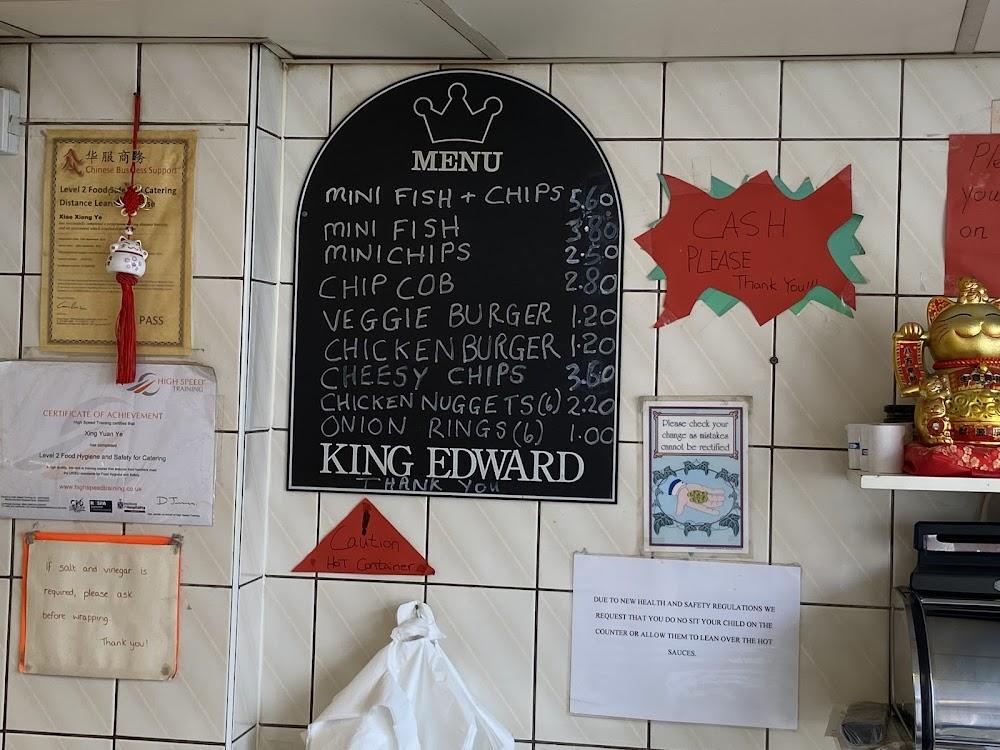 华服商务
Chinese Business Support
Level 2 Food Safety Catering
Distance Lear
Xiao Xiong Ye
PASS
HIGH SPEED
TRAINING
CERTIFICATE OF ACHIEVEMENT
High Speed Training certifies that
Xing Yuan Ye
has completed
Level 2 Food Hygiene and Safety for Catering
www.highspeedtraining.co.uk
If salt and vinegar is
required, please ask
before wrapping.
Thank you!
MENU
MINI FISH + CHIPS 5.60
MINI FISH 3.80
MINI CHIPS 2.50
CHIP COB 2.80
VEGGIE BURGER 1.20
CHICKEN BURGER 1.20
CHEESY CHIPS 3.60
CHICKEN NUGGETS (6) 2.20
ONION RINGS (6) 1.00
KING EDWARD
THANK YOU
! Caution
HOT Container
CASH
PLEASE
Thank You!!!
Please check your
change as mistakes
cannot be rectified
DUE TO NEW HEALTH AND SAFETY REGULATIONS WE
REQUEST THAT YOU DO NO SIT YOUR CHILD ON THE
COUNTER OR ALLOW THEM TO LEAN OVER THE HOT
SAUCES.
Ple
you
on